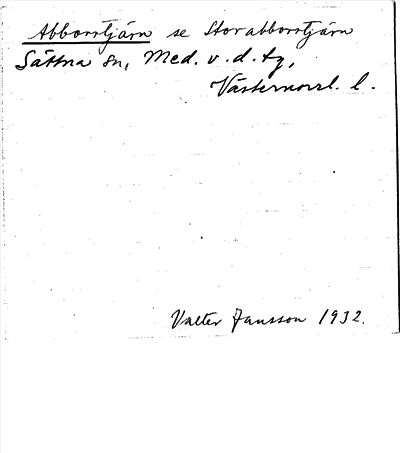 Abborrtjärn se Storabborrtjärn
Sättna sn, Med. v. d. tg,
Västernorrl. l.
Valter Jansson 1932.